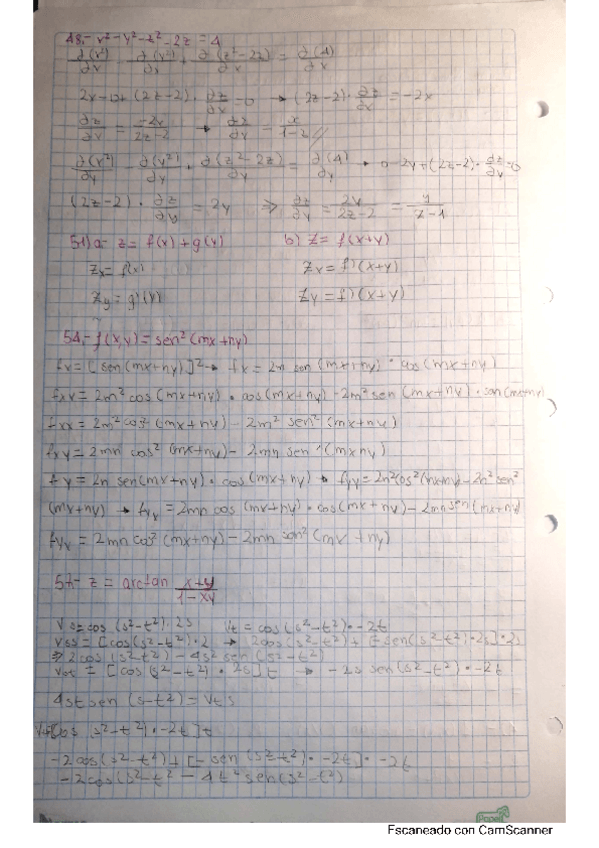 48.- x² - y² - z² - 2z = 4
∂(x²)/∂x - ∂(y²)/∂x + ∂(z²-2z)/∂x = ∂(4)/∂x
2x - 0 + (2z-2) · ∂z/∂x = 0 → (2z-2) · ∂z/∂x = -2x
∂z/∂x = -2x/2z-2 → ∂z/∂x = x/1-z //
∂(x²)/∂y - ∂(y²)/∂y · ∂(z²-2z)/∂y = ∂(4)/∂y → 0 - 2y + (2z-2) · ∂z/∂y = 0
(2z-2) · ∂z/∂y = 2y ⇒ ∂z/∂y = 2y/2z-2 = y/z-1
51) a- z = f(x) + g(y) b) z = f(x+y)
Zx = f(x) Zx = f'(x+y)
Zy = g'(y) Zy = f'(x+y)
54.- f(x,y) = sen²(mx+ny)
fx = [sen(mx+ny)]² → fx = 2m sen(mx+ny) · cos(mx+ny)
fxx = 2m² cos(mx+ny) · cos(mx+ny) - 2m² sen(mx+ny) · sen(mx+ny)
fxx = 2m² cos²(mx+ny) - 2m² sen²(mx+ny)
fxy = 2mn cos²(mx+ny) - 2mn sen²(mx ny)
fy = 2n sen(mx+ny) · cos(mx+ny) → fyy = 2n² cos²(mx+ny) - 2n² sen²
(mx+ny) → fyx = 2mn cos(mx+ny) · cos(mx+ny) - 2mn sen²(mx+ny)
fyx = 2mn cos²(mx+ny) - 2mn sen²(mx+ny)
z = arctan x+y/1-xy
Vs = cos(s²-t²) · 2s Vt = cos(s²-t²) · -2t
Vss = [cos(s²-t²) · 2 → 2cos(s²-t²) + [-sen(s²-t²) · 2s] · 2s
⇒ 2cos(s²-t²) - 4s² sen(s²-t²)
[cos(s²-t²) · 2s]t → -2s sen(s²-t²) · -2t
4st sen(s-t²) = Vts
(s²-t²) · -2t]t
-2cos(s²-t²) + [-sen(s²-t²) · -2t] · -2t
-2cos(s²-t² - 4t² sen(s²-t²)
Escaneado con CamScanner